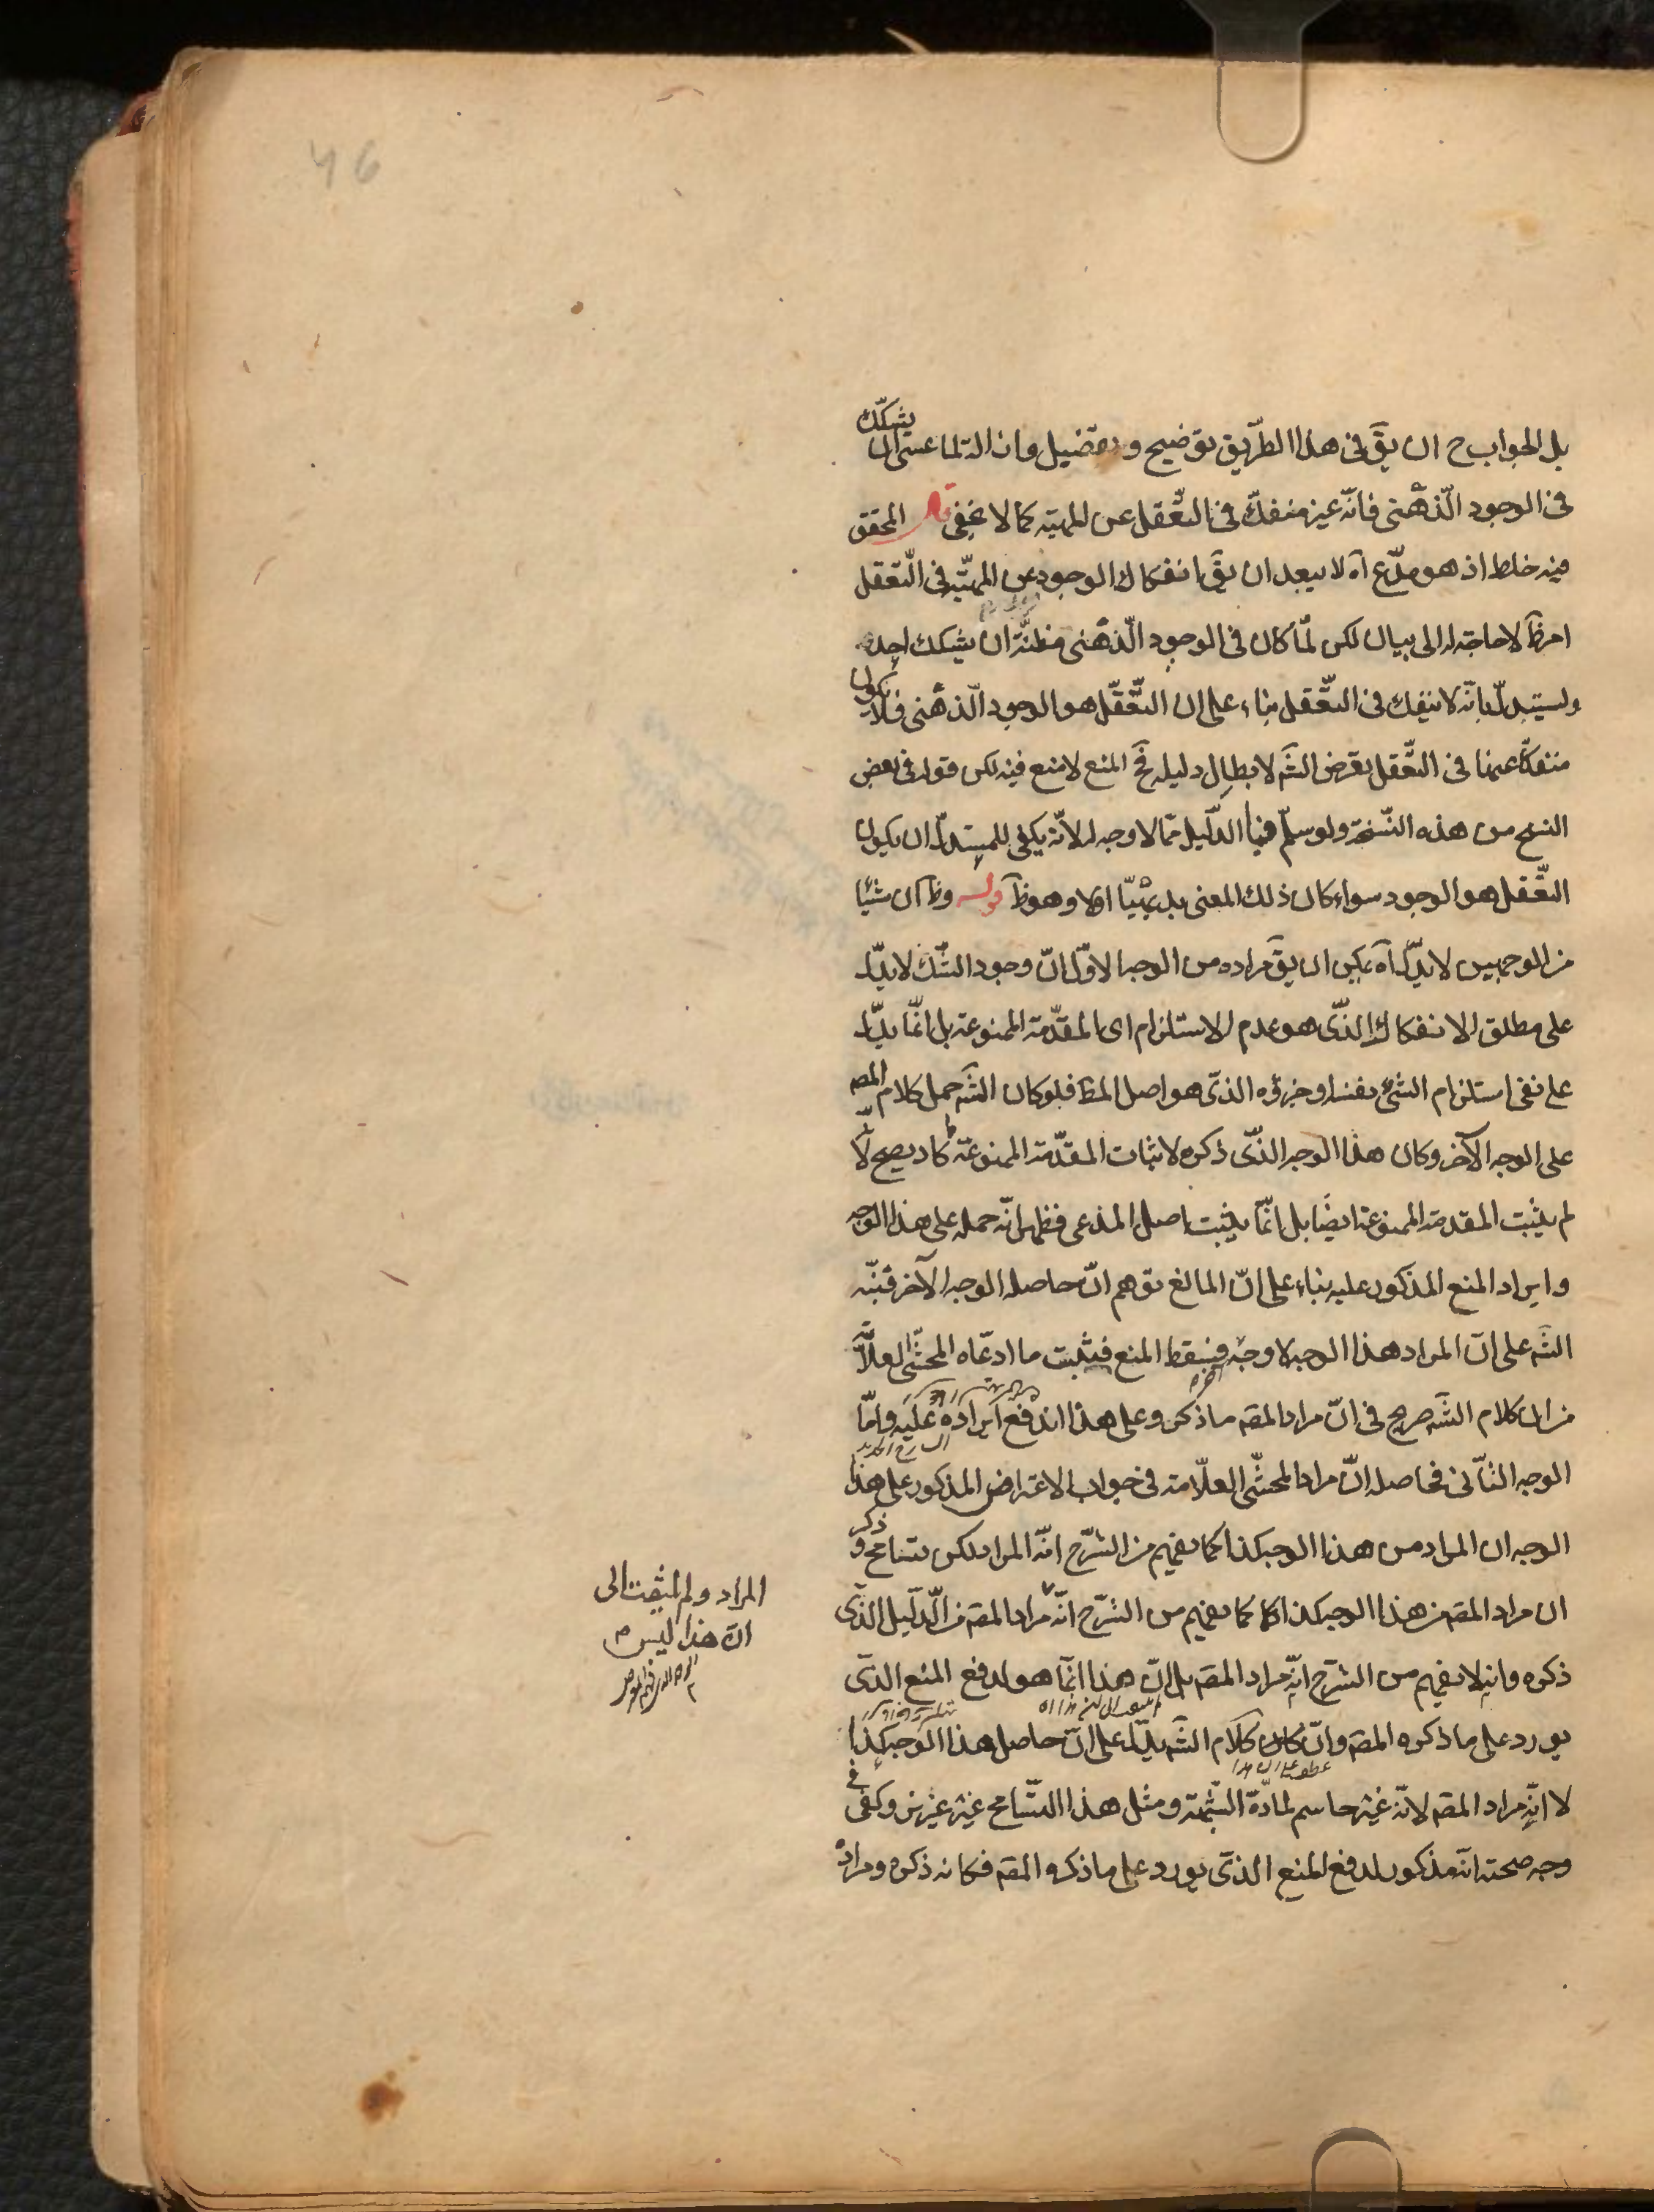 46
بل الجواب ح ان يقَ فى هذا الطّريق توضيح وتفضيل وازالة لما عسى ان يشكّك
فى الوجود الّذهنى فانّه غير منفكّ فى التّعقل عن المهيّة كما لا يخفى قال المحقق
فيه خلط اذ هو مدّع آه لا يبعد ان يقَ انفكاك الوجود عن المهيّة فى التّعقل
امر ظَ لا حاجة له الى بيان لكن لمّا كان فى الوجود الّذهنى مظنّة ان يشكك احد
ويستدلّ بانّه لا ينفك فى التّعقل بناء على ان التّعقّل هو الوجود الّذهنى فلا يكون
منفكّا عنها فى التّعقل تعرض الشَه لابطال دليله فحَ المنع لا منع فيه لكن قوله فى بعض
النسخ من هذه النّسخة ولو سلّم فيها الدّليل ممّا لا وجه له لانّه يكفى للمستدلّ ان يكون
التّعقل هو الوجود سواء كان ذلك المعنى بديهيّا او لا وهو ظَ قوله وظَ ان شيئا
من الوجهين لا يدلّ آه يمكن ان يقَ مراده من الوجه الاوّل انّ وجود الشّك لا يدلّ
على مطلق الانفكاك الذّى هو عدم الاستلزام اى المقدّمة الممنوعة بل انّما يدلّ
على نفى استلزام الشئ نفسه او جزؤه الذّى هو اصل المطَ فلو كان الشَه حمل كلام المصه
على الوجه الآخر وكان هذا الوجه الذّى ذكره لاثبات المقدّمة الممنوعة لما كاد يصح لّا
لم يثبت المقدمة الممنوعة ايضَا بل انّما يثبت اصل المدعى فظهر انّه حمله على هذا الوجه
وايراد المنع المذكور عليه بناء على انّ المانع توهم انّ حاصله الوجه الآخر فنبّه
الشَه على انّ المراد هذا الوجه لا وجه فيسقط المنع فيثبت ما ادعّاه المحشّى العلّا
من ان كلام الشَه صريح فى انّ مراد المصَه ما ذكره وعلى هذا اندفع ايراده عليه وامّا
الوجه الثّانى فحاصله انّ مراد المحشّى العلّامة فى جواب الاعتراض المذكور على هذا
الوجه ان المراد من هذا الوجه كذا كما يفهم من الشّرح انّه المراد لكن يتسامح وذكر
ان مراد المصَه من هذا الوجه كذا لا كما يفهم من الشّرح انّه مراد المصَه من الّدليل الذّى
ذكره وانه لا يفهم من الشّرح انّه مراد المصَه بل انّ هذا انّما هو لدفع المنع الذّى
يورد على ما ذكره المصَه وانّ كان كلام الشَه يدلّ على انّ حاصل هذا الوجه كذا
لا انّه مراد المصَه لانّه غير حاسم لمادّة الشّبهة ومثل هذا التّسامح غير عزيز وكفى فى
وجه صحته انّه مذكور لدفع المنع الذّى يورد على ما ذكره المصَه فكانه ذكره ومراده
المراد ولم يلتفت الى
انّ هذا ليس